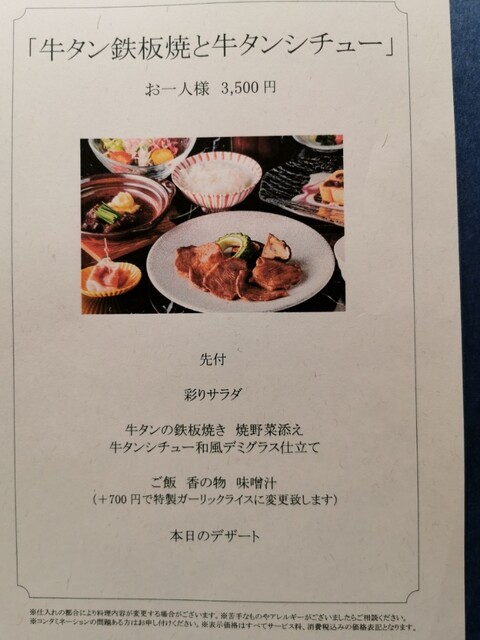 「牛タン鉄板焼と牛タンシチュー」
お一人様 3,500円
先付
彩りサラダ
牛タンの鉄板焼き 焼野菜添え
牛タンシチュー和風デミグラス仕立て
ご飯 香の物 味噌汁
(+700円で特製ガーリックライスに変更致します)
本日のデザート
※仕入れの都合により料理内容が変更する場合がございます。※苦手なものやアレルギーがございましたらご相談ください。
※コンタミネーションの問題ある方はお申し付けください。※表示価格はすべてサービス料、消費税込みの価格表記となります。